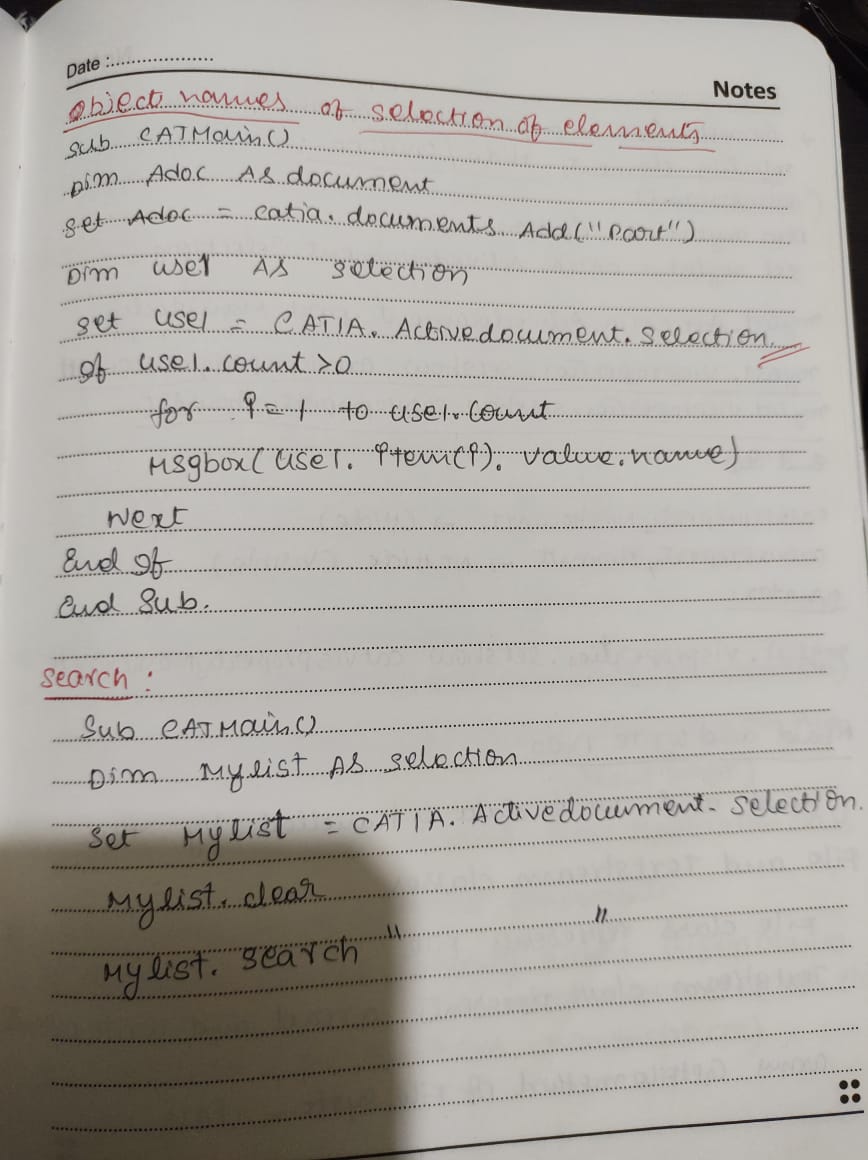 Date :....................
Notes
Object names of selection of elements
Sub CATMain()
Dim Adoc As document
Set Adoc = catia. documents. Add("Part")
Dim usel As selection
Set usel = CATIA. Activedocument. Selection
If usel. count >0
for i = 1 to usel. count
Msgbox( usel. item(i). value. name)
Next
End If
End Sub.
Search :
Sub CATMain()
Dim Mylist As selection
Set Mylist = CATIA. Activedocument. Selection.
Mylist. clear
Mylist. search " "